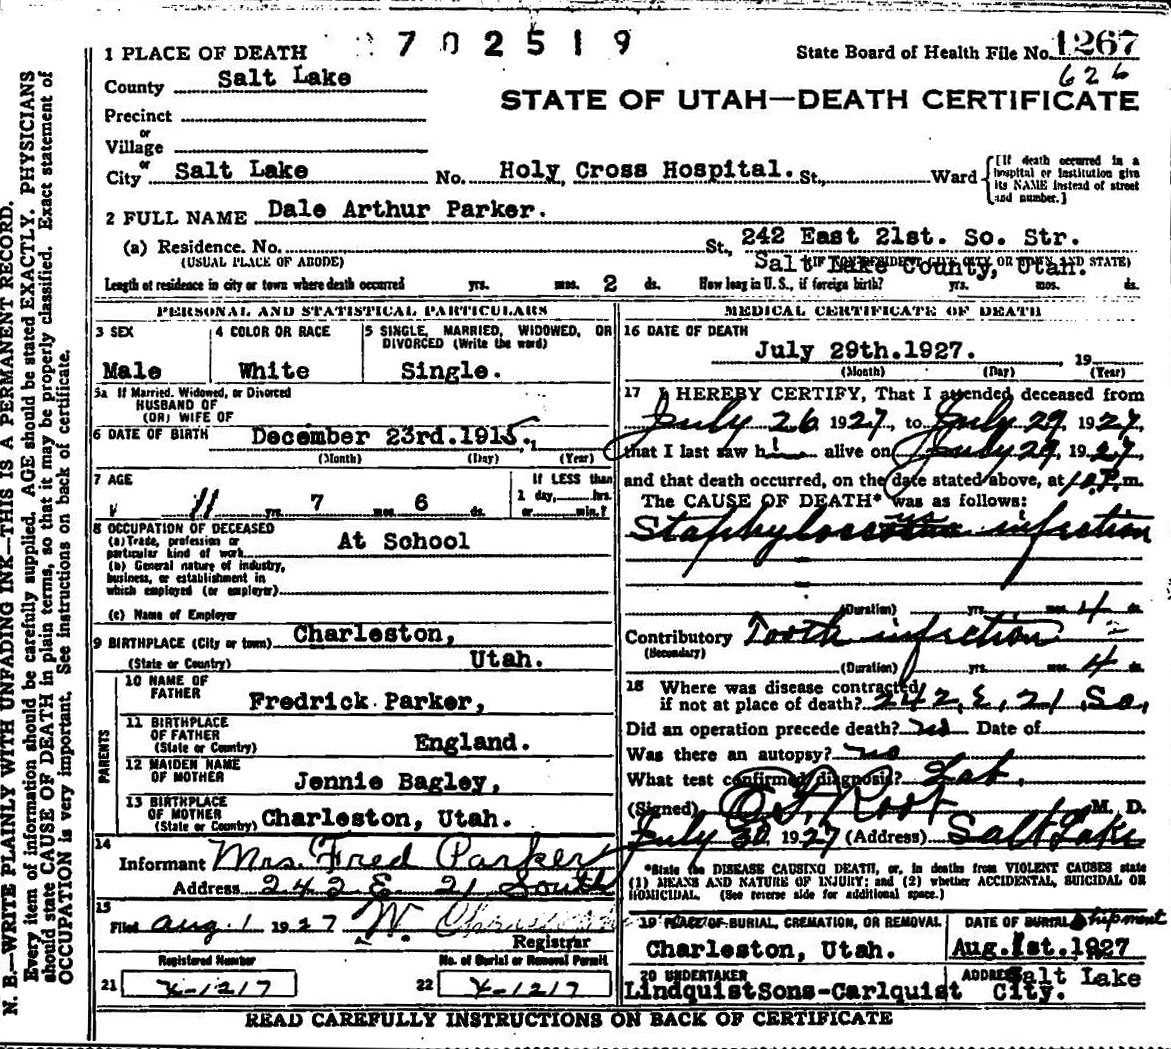 702519
1 PLACE OF DEATH
State Board of Health File No. 1267
626
County Salt Lake
STATE OF UTAH—DEATH CERTIFICATE
Precinct
or
Village
or
City Salt Lake No. Holy Cross Hospital. St., Ward
[If death occurred in a hospital or institution give its NAME instead of street and number.]
2 FULL NAME Dale Arthur Parker.
(a) Residence. No. St., 242 East 21st. So. Str.
(USUAL PLACE OF ABODE) Salt Lake County, Utah.
(IF NONRESIDENT GIVE CITY OR TOWN AND STATE)
Length of residence in city or town where death occurred yrs. mos. 2 ds. How long in U. S., if foreign birth? yrs. mos. ds.
PERSONAL AND STATISTICAL PARTICULARS
3 SEX
Male
4 COLOR OR RACE
White
5 SINGLE, MARRIED, WIDOWED, OR DIVORCED (Write the word)
Single.
5a If Married, Widowed, or Divorced
HUSBAND OF
(OR) WIFE OF
6 DATE OF BIRTH December 23rd.1915.
(Month) (Day) (Year)
7 AGE
11 yrs. 7 mos. 6 ds.
If LESS than
1 day, hrs.
or min.?
8 OCCUPATION OF DECEASED
(a) Trade, profession or
particular kind of work At School
(b) General nature of industry,
business, or establishment in
which employed (or employer)
(c) Name of Employer
9 BIRTHPLACE (City or town) Charleston,
(State or Country) Utah.
PARENTS
10 NAME OF FATHER
Fredrick Parker,
11 BIRTHPLACE OF FATHER
(State or Country) England.
12 MAIDEN NAME OF MOTHER
Jennie Bagley,
13 BIRTHPLACE OF MOTHER
(State or Country) Charleston, Utah.
14
Informant Mrs. Fred Parker
Address 242 E 21 South
15
Filed Aug. 1 1927 W.
Registrar
Registered Number
21 X-1217
No. of Burial or Removal Permit
22 X-1217
MEDICAL CERTIFICATE OF DEATH
16 DATE OF DEATH
July 29th.1927. , 19
(Month) (Day) (Year)
17 I HEREBY CERTIFY, That I attended deceased from
July 26 1927, to July 29, 1927,
that I last saw him alive on July 29, 1927,
and that death occurred, on the date stated above, at 10 P.m.
The CAUSE OF DEATH* was as follows:
infection
(Duration) yrs. mos. 4 ds.
Contributory Tooth infection
(Secondary)
(Duration) yrs. mos. 4 ds.
18 Where was disease contracted
if not at place of death? 242, E, 21, So,
Did an operation precede death? no Date of
Was there an autopsy? no
What test confirmed diagnosis? Lab.
(Signed) Root M. D.
July 30, 1927 (Address) Salt Lake
*State the DISEASE CAUSING DEATH, or, in deaths from VIOLENT CAUSES state
(1) MEANS AND NATURE OF INJURY; and (2) whether ACCIDENTAL, SUICIDAL OR
HOMICIDAL. (See reverse side for additional space.)
19 PLACE OF BURIAL, CREMATION, OR REMOVAL
Charleston, Utah.
DATE OF BURIAL Shipment
Aug.1st.1927
20 UNDERTAKER
LindquistSons-Carlquist
ADDRESS Salt Lake
City.
READ CAREFULLY INSTRUCTIONS ON BACK OF CERTIFICATE
N. B.—WRITE PLAINLY WITH UNFADING INK—THIS IS A PERMANENT RECORD.
Every item of information should be carefully supplied. AGE should be stated EXACTLY. PHYSICIANS
should state CAUSE OF DEATH in plain terms, so that it may be properly classified. Exact statement of
OCCUPATION is very important. See instructions on back of certificate.